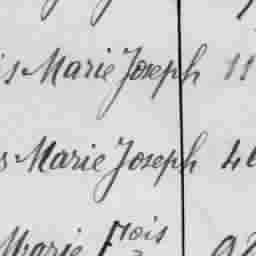 is Marie Joseph 11
s Marie Joseph 46
Marie Fois 92